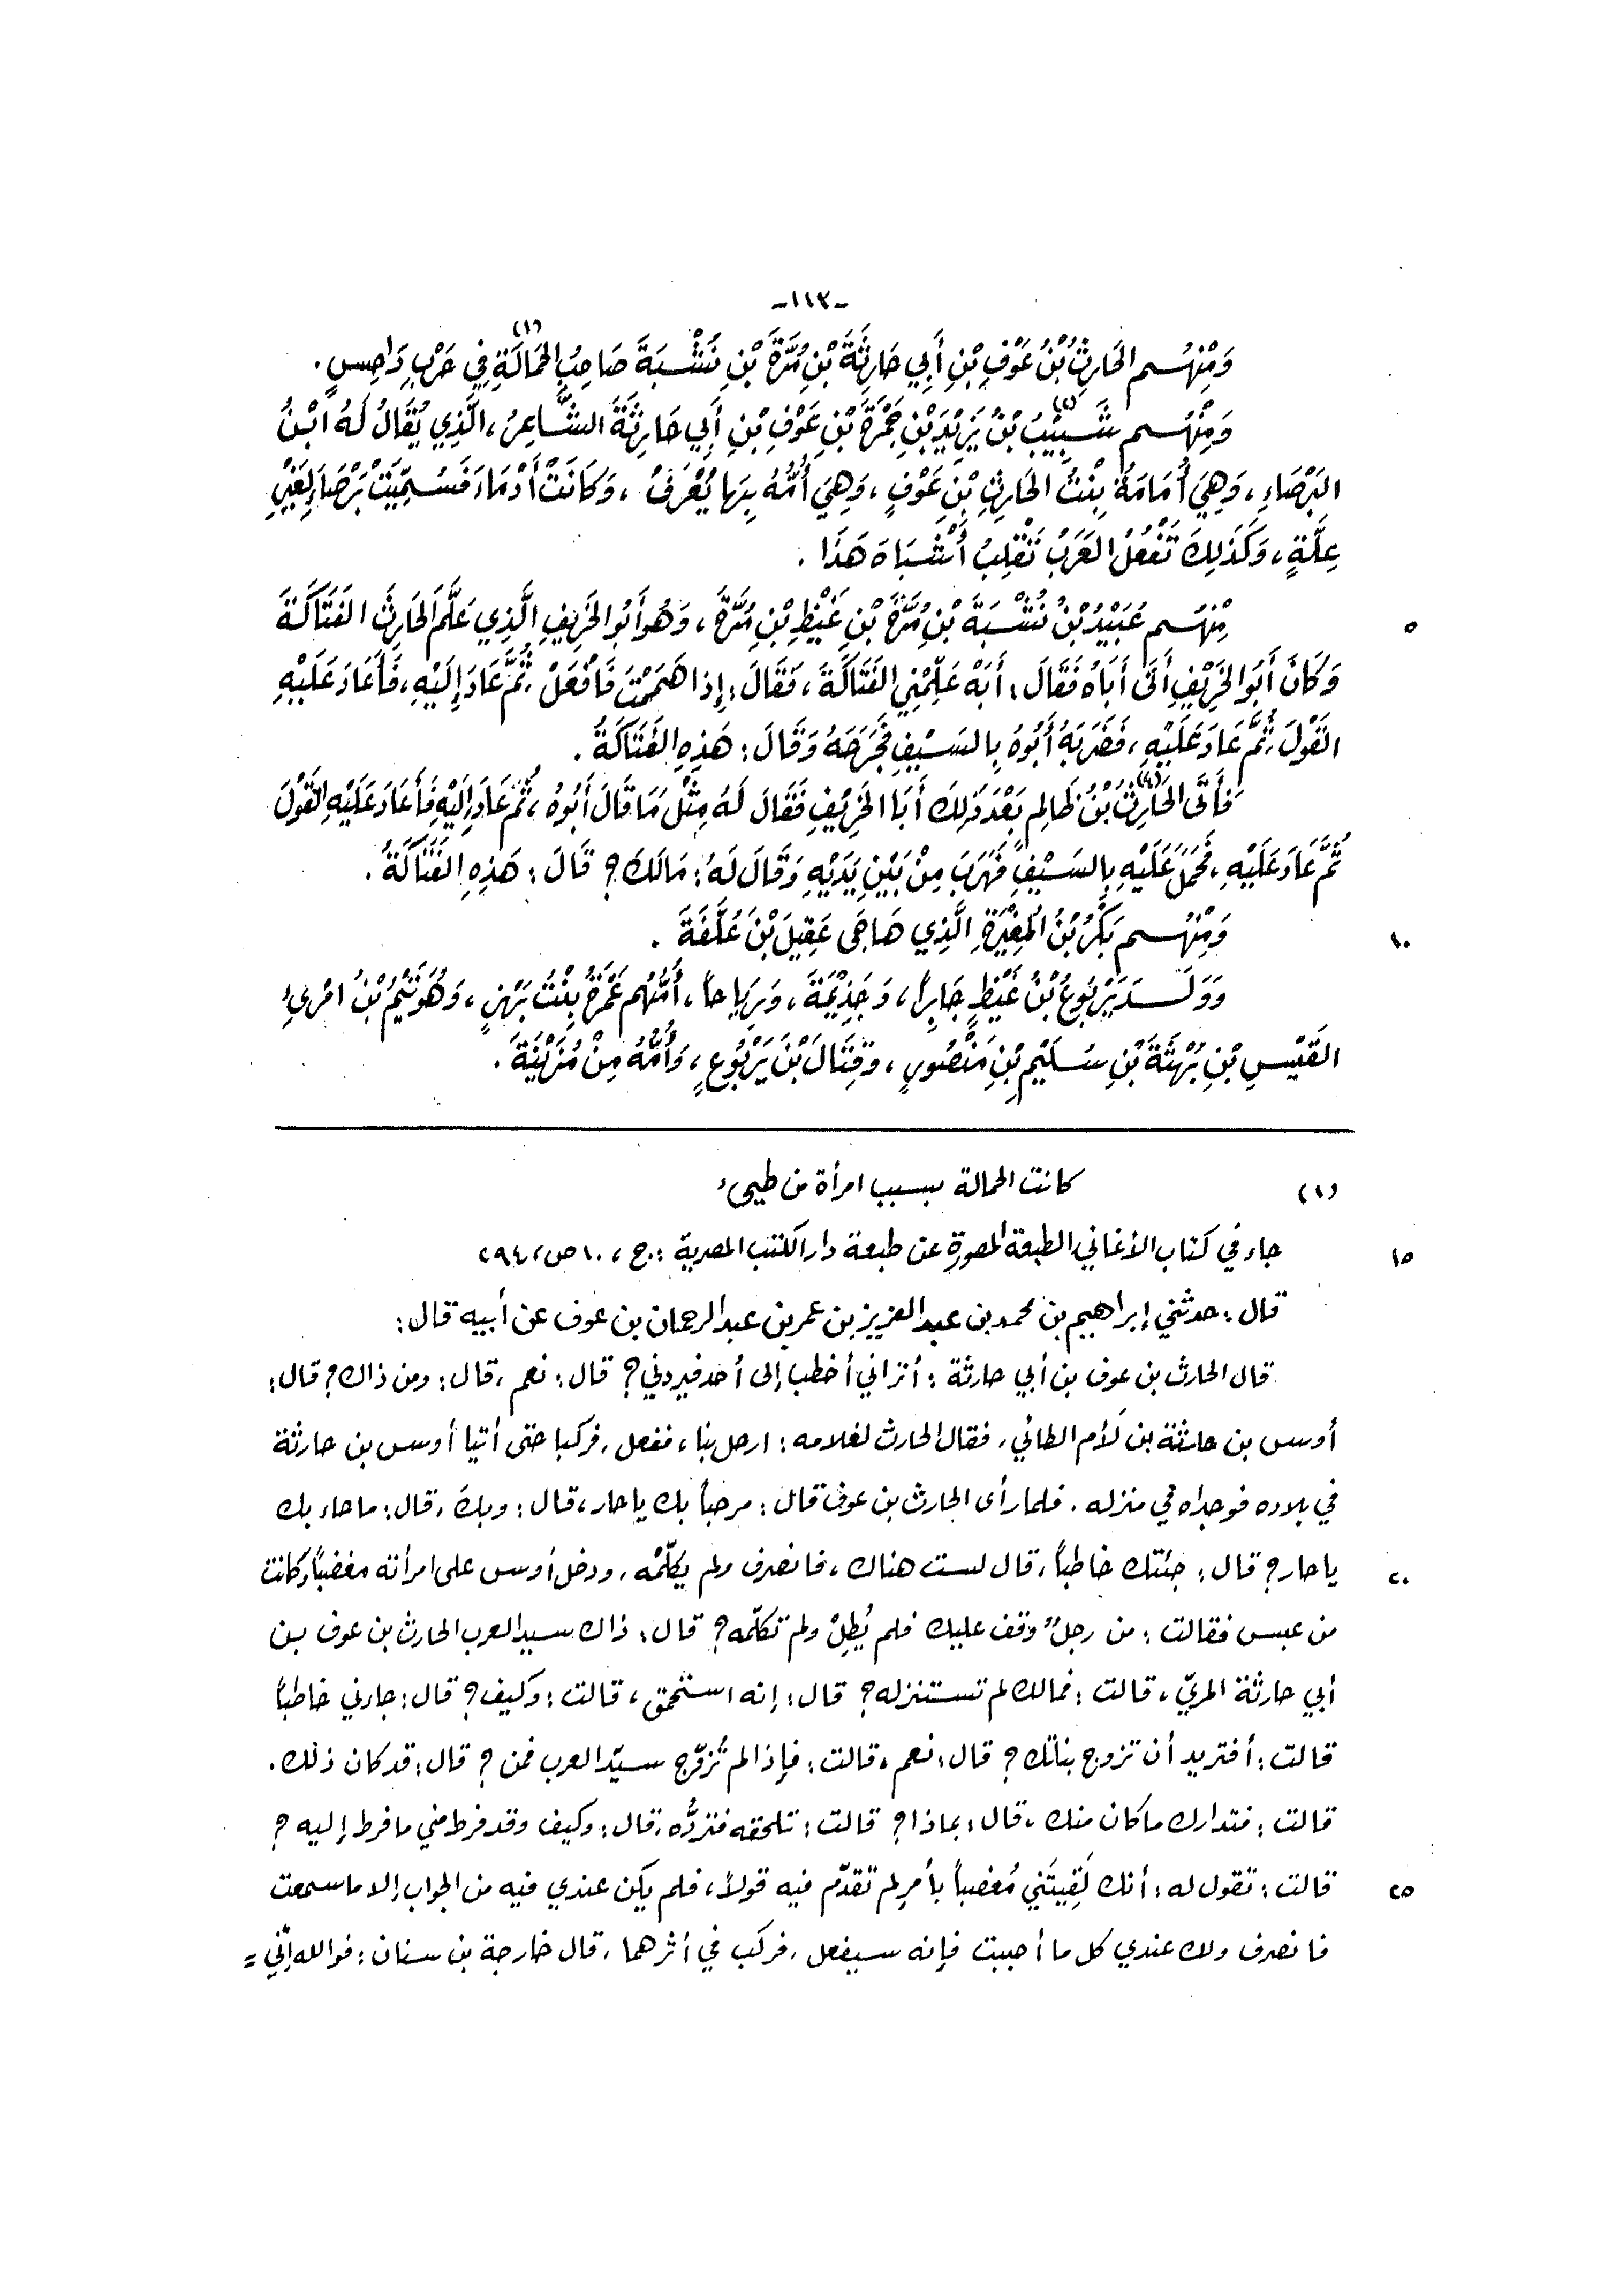 -١١٣-
وَمِنْهُم الحَارِثُ بْنُ عَوْفِ بْنِ أَبِي حَارِثَةَ بْنِ مُرَّةَ بْنِ نُشْبَةَ صَاحِبُ الحَمَالَةِ (١) فِي حَرْبِ دَاحِسٍ .
وَمِنْهُم شَبِيْبُ (٢) بْنُ يَزِيْدَ بْنِ جَمْرَةَ بْنِ عَوْفِ بْنِ أَبِي حَارِثَةَ الشَّاعِرُ ، الَّذِي يُقَالُ لَهُ ابْنُ
البَرْصَاءِ ، وَهِيَ أُمَامَةُ بِنْتُ الحَارِثِ بْنِ عَوْفٍ ، وَهِيَ أُمُّهُ بِهَا يُعْرَفُ ، وَكَانَتْ أَدْمَاءَ فَسُمِّيَتْ بَرْصَاءَ لِغَيْرِ
عِلَّةٍ ، وَكَذَلِكَ تَفْعَلُ العَرَبُ تَقْلِبُ أَشْبَاهَ هَذَا .
٥ مِنْهُم عُبَيْدُ بْنُ نُشْبَةَ بْنِ مُرَّةَ بْنِ غَيْظِ بْنِ مُرَّةَ ، وَهُوَ أَبُو الخَرِيْفِ الَّذِي عَلَّمَ الحَارِثَ الفَتَاكَةَ
وَكَانَ أَبُو الخَرِيْفِ أَتَى أَبَاهُ فَقَالَ : أَبَهْ عَلِّمْنِي الفَتَاكَةَ ، فَقَالَ : إِذَا هَمَمْتَ فَافْعَلْ ، ثُمَّ عَادَ إِلَيْهِ ، فَأَعَادَ عَلَيْهِ
القَوْلَ ، ثُمَّ عَادَ عَلَيْهِ ، فَضَرَبَهُ أَبُوهُ بِالسَّيْفِ فَجَرَحَهُ وَقَالَ : هَذِهِ الفَتَاكَةُ .
فَأَتَى الحَارِثُ (٤) بْنُ ظَالِمٍ بَعْدَ ذَلِكَ أَبَا الخَرِيْفِ فَقَالَ لَهُ مِثْلَ مَا قَالَ أَبُوهُ ، ثُمَّ عَادَ إِلَيْهِ فَأَعَادَ عَلَيْهِ القَوْلَ
ثُمَّ عَادَ عَلَيْهِ ، فَحَمَلَ عَلَيْهِ بِالسَّيْفِ فَهَرَبَ مِنْ بَيْنِ يَدَيْهِ وَقَالَ لَهُ : مَالَكَ ؟ قَالَ : هَذِهِ الفَتَاكَةُ .
١٠ وَمِنْهُم بَكْرُ بْنُ المُغِيْرَةِ الَّذِي هَاجَى عَقِيلَ بْنَ عُلَّفَةَ .
وَوَلَدَ يَرْبُوعُ بْنُ غَيْظٍ جَابِراً ، وَجَذِيْمَةَ ، وَرِيَاحاً ، أُمُّهُم عَمْرَةُ بِنْتُ بَهْزٍ ، وَهُوَ تَيْمُ بْنُ امْرِئِ
القَيْسِ بْنِ بُهْثَةَ بْنِ سُلَيْمِ بْنِ مَنْصُورٍ ، وَقِتَالَ بْنَ يَرْبُوعٍ ، وَأُمُّهُ مِنْ مُزَيْنَةَ .
(١) كانت الحمالة بسبب امرأة من طيىء
١٥ جاء في كتاب الأغاني الطبعة المصورة عن طبعة دار الكتب المصرية : ج ، ١٠ ص ، ٢٩٤
قال : حدثني إبراهيم بن محمد بن عبد العزيز بن عمر بن عبد الرحمان بن عوف عن أبيه قال :
قال الحارث بن عوف بن أبي حارثة : أتراني أخطب إلى أحد فيردني ؟ قال : نعم ، قال : ومن ذاك ؟ قال :
أوس بن حارثة بن لَأم الطائي ، فقال الحارث لغلامه : ارحل بنا ، ففعل ، فركبا حتى أتيا أوس بن حارثة
في بلاده فوجداه في منزله . فلما رأى الحارث بن عوف قال : مرحباً بك يا حار ، قال : وبك ، قال : ما جاء بك
٢٠ يا حار ؟ قال : جئتك خاطباً ، قال لست هناك ، فانصرف ولم يكلّمْه ، ودخل أوس على امرأته مغضباً وكانت
من عبس فقالت : من رجلٌ وقف عليك فلم يُطِلْ ولم تكلّمه ؟ قال : ذاك سيد العرب الحارث بن عوف بن
أبي حارثة المريّ ، قالت : فمالك لم تستنزله ؟ قال : إنه استحمق ، قالت : وكيف ؟ قال : جاءني خاطباً
قالت : أفتريد أن تزوج بناتك ؟ قال : نعم ، قالت : فإذا لم تُزوّج سيّد العرب فمن ؟ قال : قد كان ذلك .
قالت : فتدارك ما كان منك ، قال : بماذا ؟ قالت : تلحقه فتردُّه ، قال : وكيف وقد فرط مني ما فرط إليه ؟
٢٥ قالت : تقول له : أنك لَقِيتَني مُغضباً بأمرٍ لم تقدّم فيه قولاً ، فلم يكن عندي فيه من الجواب إلا ما سمعت
فانصرف ولك عندي كل ما أحببت فإنه سيفعل ، فركب في أثرهما ، قال خارجة بن سنان : فوالله إنّي =